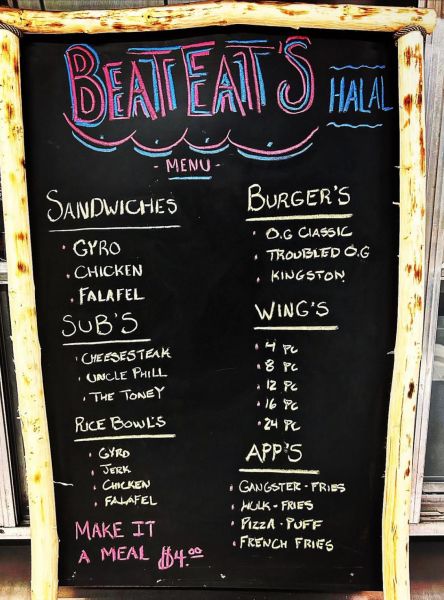 BEATEATT'S HALAL
- MENU -
SANDWICHES
• GYRO
• CHICKEN
• FALAFEL
SUB'S
• CHEESESTEAK
• UNCLE PHILL
• THE TONEY
RICE BOWL'S
• GYRO
• JERK
• CHICKEN
• FALAFEL
MAKE IT
A MEAL $4.00
BURGER'S
• O.G CLASSIC
• TROUBLED O.G
• KINGSTON
WING'S
• 4 PC
• 8 PC
• 12 PC
• 16 PC
• 24 PC
APP'S
• GANGSTER-FRIES
• HULK-FRIES
• PIZZA-PUFF
• FRENCH FRIES